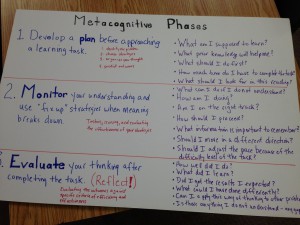 Metacognitive Phases
1. Develop a plan before approaching
a learning task.
• What am I supposed to learn?
• What prior knowledge will help me?
• What should I do first?
• How much time do I have to complete this?
• What should I look for in this reading?
2. Monitor your understanding and
use "fix up" strategies when meaning
breaks down.
• What can I do if I do not understand?
• How am I doing?
• Am I on the right track?
• How should I proceed?
• What information is important to remember?
• Should I move in a different direction?
• Should I adjust the pace because of the
difficulty level of the task?
Evaluate your thinking after
completing the task. (Reflect!)
• How well did I do?
• What did I learn?
• Did I get the results I expected?
• What could I have done differently?
• Can I apply this way of thinking to other problems
• Is there anything I don't understand -